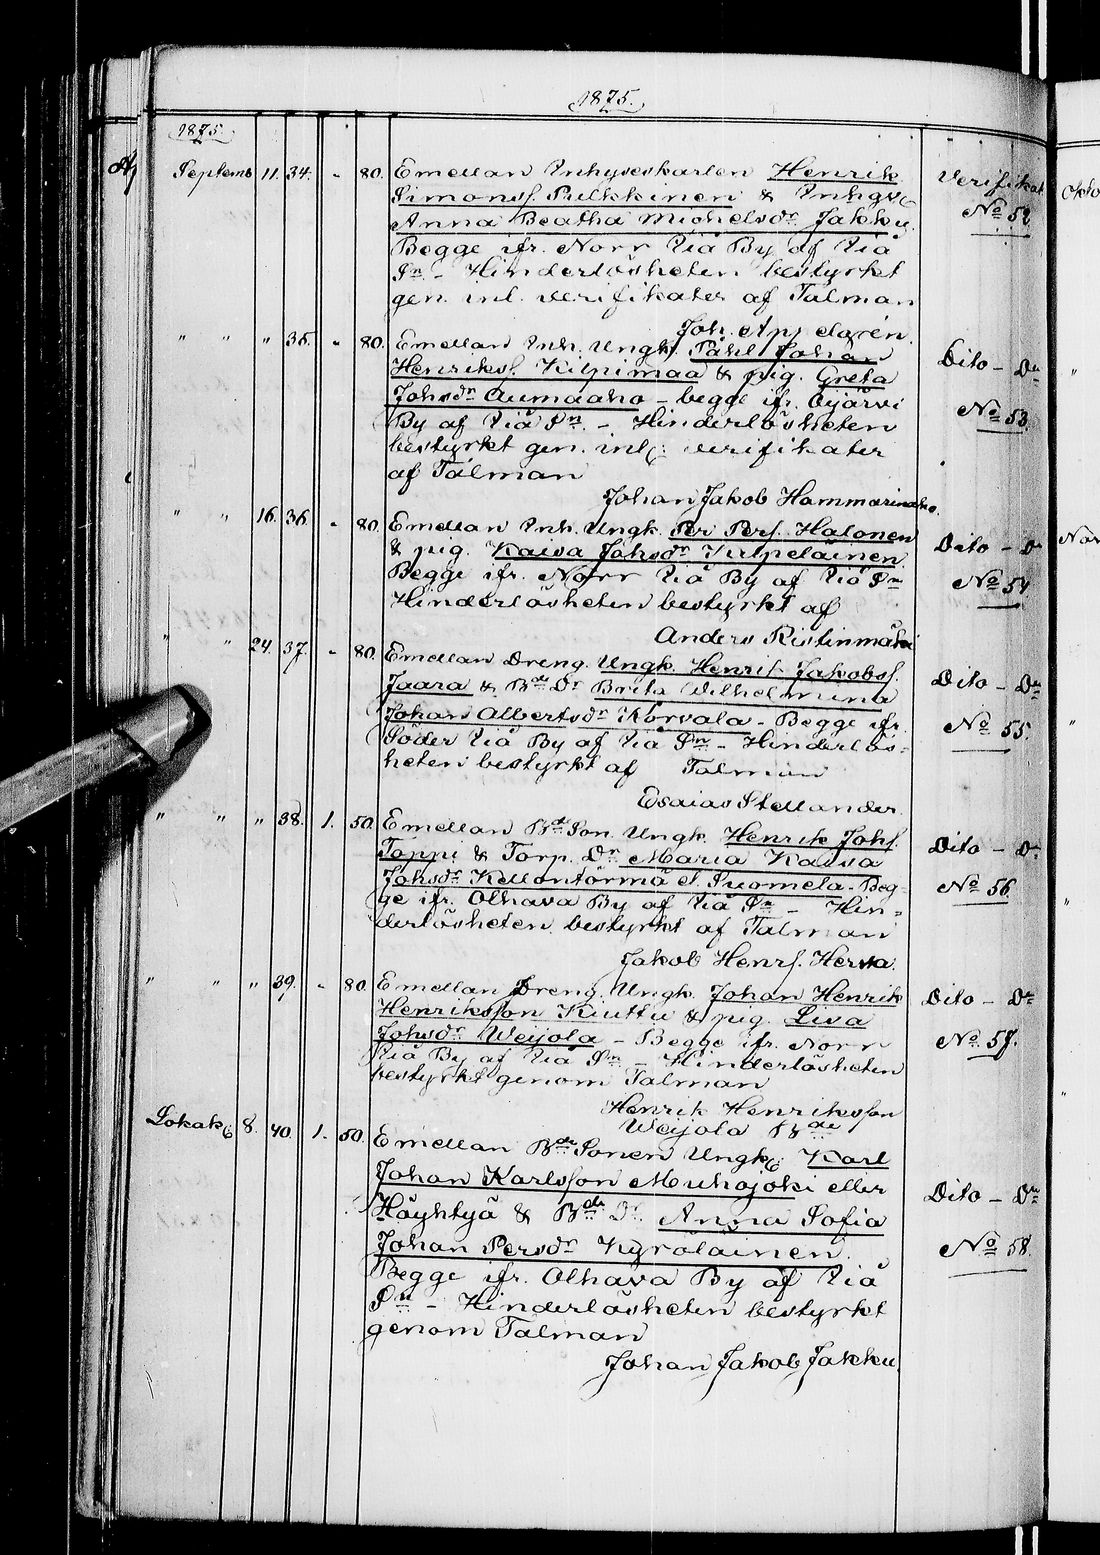 1875.
1875.
Septemb 11. 34. - 80. Emellan Inhyseskarlen Henrik Verifikat
Simonss. Pulkkinen & Inhys No 52.
Anna Beatha Michelsdr Jakku.
Begge ifr. Norr Iiå By af Iiå
Sn - Hinderlösheten bestyrkt
gen. inl. verifikater af Talman
Joh. Appelgrén.
" " " 35. - 80. Emellan Inh. Ungk. Påhl Johan Dito - Do
Henrikss. Kilpimaa & pig. Greta
Johsdr Aumaaho - begge ifr. Oijärvi No 53.
By af Iiå Sn. - Hinderlösheten
bestyrkt gen. inl: verifikater
af Talman
Johan Jakob Hammarinaho.
" " 16. 36. - 80. Emellan Inh. Ungk. Per Pers. Halonen Dito - Do
& pig. Kaisa Johsdr Kulpelainen
Begge ifr. Norr Iiå By af Iiå Sn No 54
Hinderlösheten bestyrkt af
Anders Ristinmäki
" " 24. 37. - 80. Emellan Dreng. Ungk. Henrik Jakobss. Dito - Do
Jaara & Bde Dr Brita Wilhelmina
Johan Albertsdr Korvala - Begge ifr. No 55.
Söder Iiå By af Iiå Sn - Hinderlös-
heten bestyrkt af Talman
Esaias Stellander.
" " " 38. 1. 50. Emellan Bde Son. Ungk. Henrik Johs. Dito - Do
Toppi & Torp. Dr Maria Kaisa
Johsdr Kellontörmä l. Suomela - Beg- No 56.
ge ifr. Olhava By af Iiå Sn - Hin-
derlösheten bestyrkt af Talman
Jakob Henrs. Herva.
" " " 39. - 80. Emellan Dreng. Ungk. Johan Henrik Dito - Do
Henriksson Kiuttu & pig. Liva
Johsdr Weijola - Begge ifr. Norr No 57.
Iiå By af Iiå Sn - Hinderlösheten
bestyrkt genom Talman
Henrik Henriksson
Weijola Bde
Lokak 8. 40. 1. 50. Emellan Bde Sonen Ungk. Karl
Johan Karlsson Muhojoki eller Dito - Do
Häyhtyä & Bde Dr. Anna Sofia
Johan Persdr Kyröläinen. No 58.
Begge ifr. Olhava By af Iiå
Sn - Hinderlösheten bestyrkt
genom Talman
Johan Jakob Jakku.